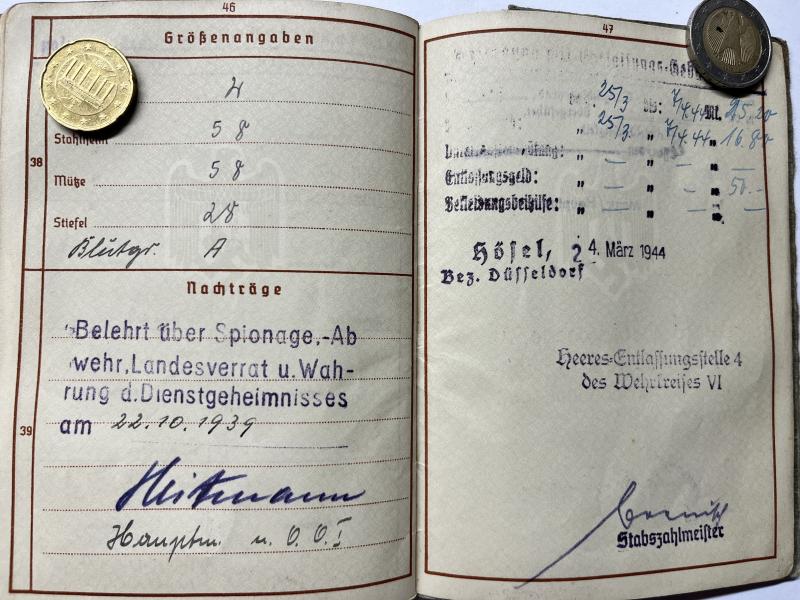 46
Größenangaben
4
Stahlhelm 58
38
Mütze 58
Stiefel 28
Blutgr. A
Nachträge
Belehrt über Spionage,-Ab
wehr, Landesverrat u. Wah-
rung d. Dienstgeheimnisses
39
am 22.10.1939
Heitmann
Hauptm. u.
47
25/3 bis: 7/4.44 M. 25.20
" 25/3 " 7/4.44 " 16.80
" — " — " —
Entlassungsgeld: " — " — " 50.-
Bekleidungsbeihilfe: " — " — " —
Hösel, 24. März 1944
Bez. Düsseldorf
Heeres-Entlassungsstelle 4
des Wehrkreises VI
Stabszahlmeister